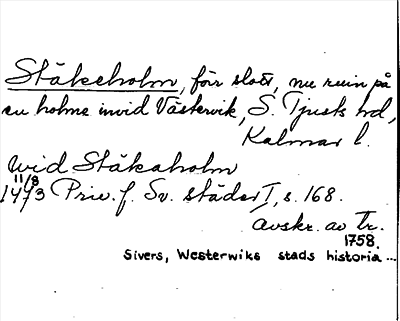 Stäkeholm, förr slott, nu ruin på
en holme invid Västervik, S. Tjusts hd,
Kalmar l.
wid Stäkaholm
11/8 1473 Priv. f. Sv. städer I, s. 168.
Avskr. av Tr.
1758.
Sivers, Westerwiks stads historia...